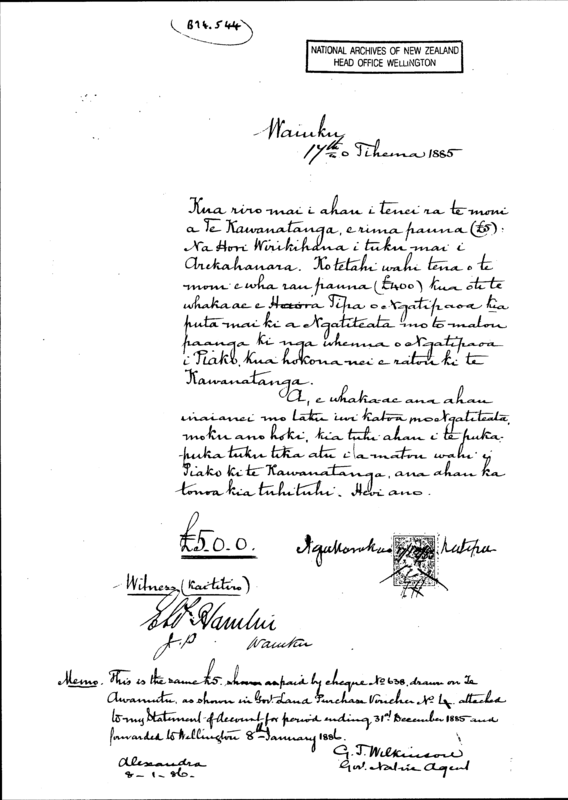 B14.544
NATIONAL ARCHIVES OF NEW ZEALAND
HEAD OFFICE WELLINGTON
Waiuku
17th o Tihema 1885
Kua riro mai i ahau i tenei ra te moni
a Te Kawanatanga, e rima pauna (£5).
Na Hori Wirikihana i tuku mai i
Arekahanara. Ko tetahi wahi tena o te
moni e wha rau pauna (£400) kua oti te
whakaae e Tipa o Ngatipaoa kia
puta mai ki a Ngatiteata mo to matou
paanga ki nga whenua o Ngatipaoa
i Piako, kua hokona nei e ratou ki te
Kawanatanga.
A, e whakaae ana ahau
inaianei mo taku iwi katoa mo Ngatiteata,
moku ano hoki, kia tuhi ahau i te puka-
puka tuku tika atu i a matou wahi i
Piako ki te Kawanatanga, ana ahau ka
tonoa kia tuhituhi. Heoi ano.
£5.0.0.
Witness (Kaititiro)
Hamlin
J.P. Waiuku
Memo. This is the same £5. paid by cheque No 638, drawn on Te
Awamutu, as shown in Govt Land Purchase Voucher No attached
to my Statement of Account for period ending 31st December 1885 and
forwarded to Wellington 8th January 1886.
G. T. Wilkinson
Alexandra Govt Native Agent
8-1-86.